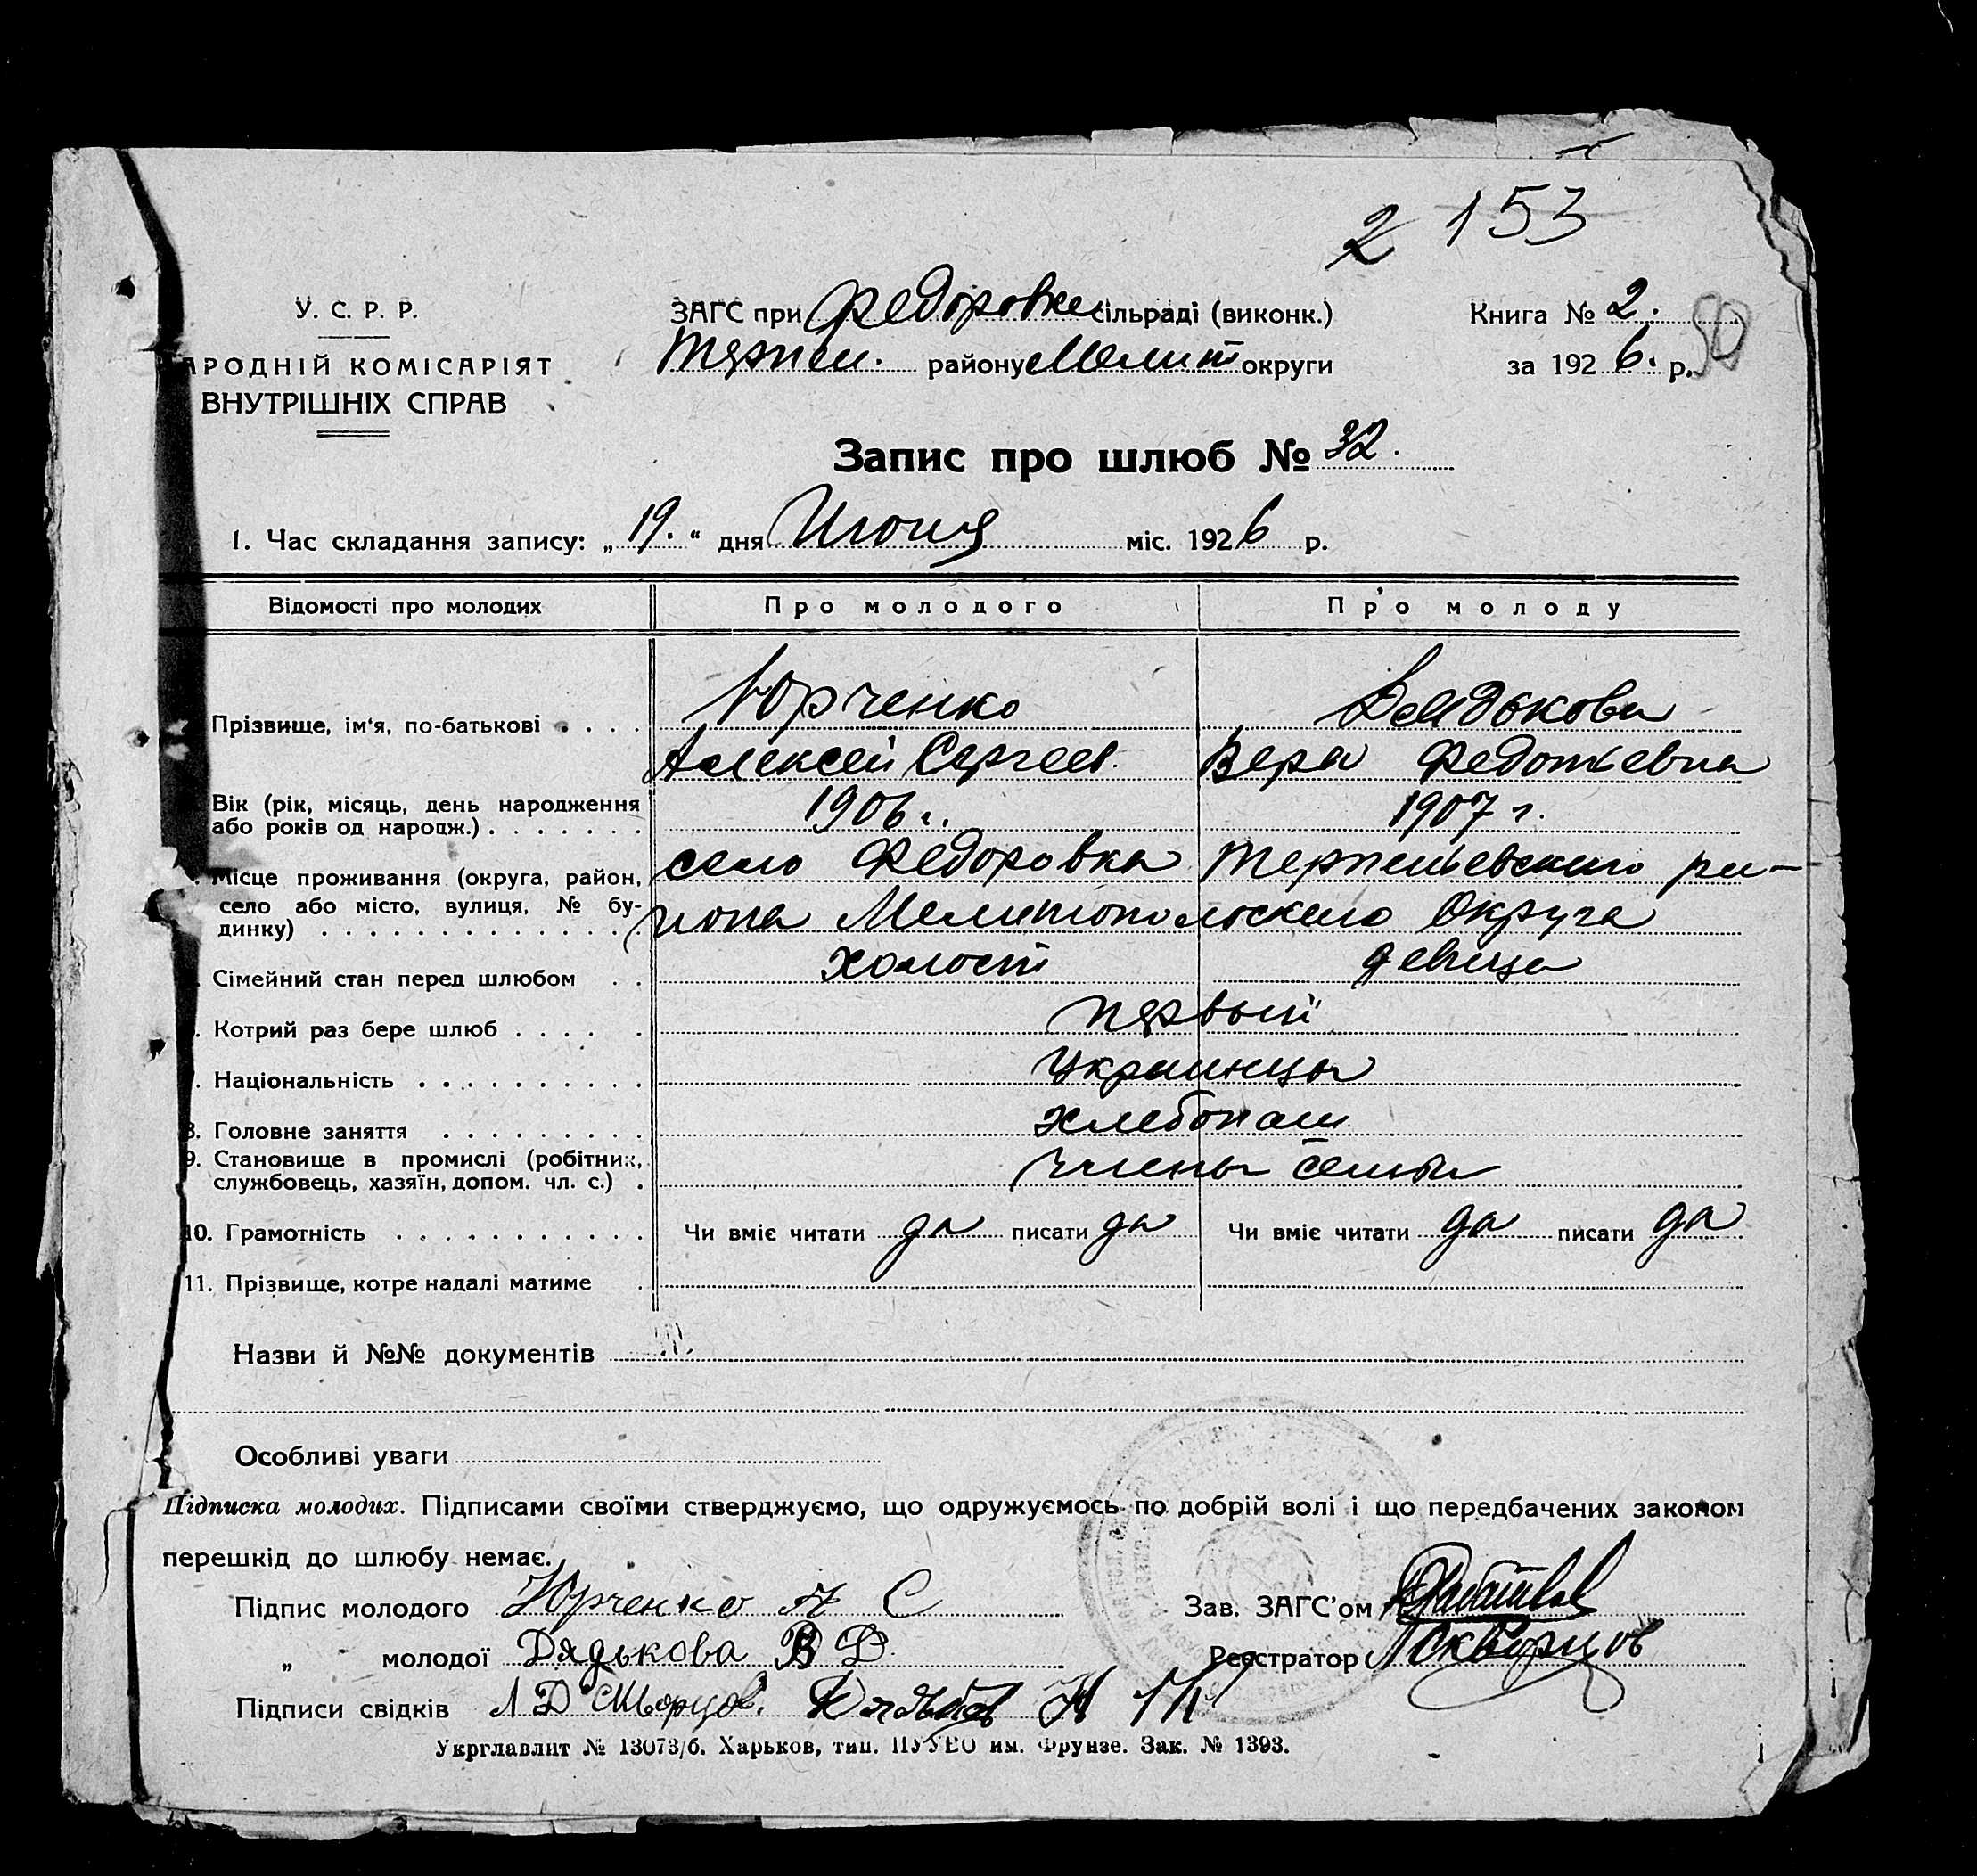 2 153
У. С. Р. Р.
ЗАГС при Федоровке сільраді (виконк.)
Книга № 2.
50
Терпен. району Мелит округи
за 1926. р.
АРОДНІЙ КОМІСАРІЯТ
ВНУТРІШНІХ СПРАВ
Запис про шлюб № 32.
1. Час складання запису: „19.“ дня Июня міс. 1926 р.
Відомості про молодих Про молодого Про молоду
Прізвище, ім'я, по-батькові . . . . Юрченко Дядькова
Алексей Сергеев. Вера Федотьевна
Вік (рік, місяць, день народження
або років од народж.) . . . . . . . 1906 г. 1907 г.
Місце проживання (округа, район, село Федоровка Терпеньевского ра-
село або місто, вулиця, № бу-
динку) . . . . . . . . . . . . . . йона Мелитопольского Округа
Сімейний стан перед шлюбом . . холост девица
Котрий раз бере шлюб . . . . . первый
Національність . . . . . . . . . . украинцы
8. Головне заняття . . . . . . . . . хлебопаш.
9. Становище в промислі (робітник,
службовець, хазяїн, допом. чл. с.) . члены семьи
10. Грамотність . . . . . . . . . . . Чи вміє читати да писати да Чи вміє читати да писати да
11. Прізвище, котре надалі матиме .
Назви й №№ документів
Особливі уваги
Підписка молодих. Підписами своїми стверджуємо, що одружуємось по добрій волі і що передбачених законом
перешкід до шлюбу немає.
Підпис молодого Юрченко А С
Зав. ЗАГС'ом
„ молодої Дядькова В Ф.
Реєстратор Скворцов
Підписи свідків Л Д Скворцов.
Укрглавлит № 13073/б. Харьков, тип. ПУУВО им. Фрунзе. Зак. № 1393.